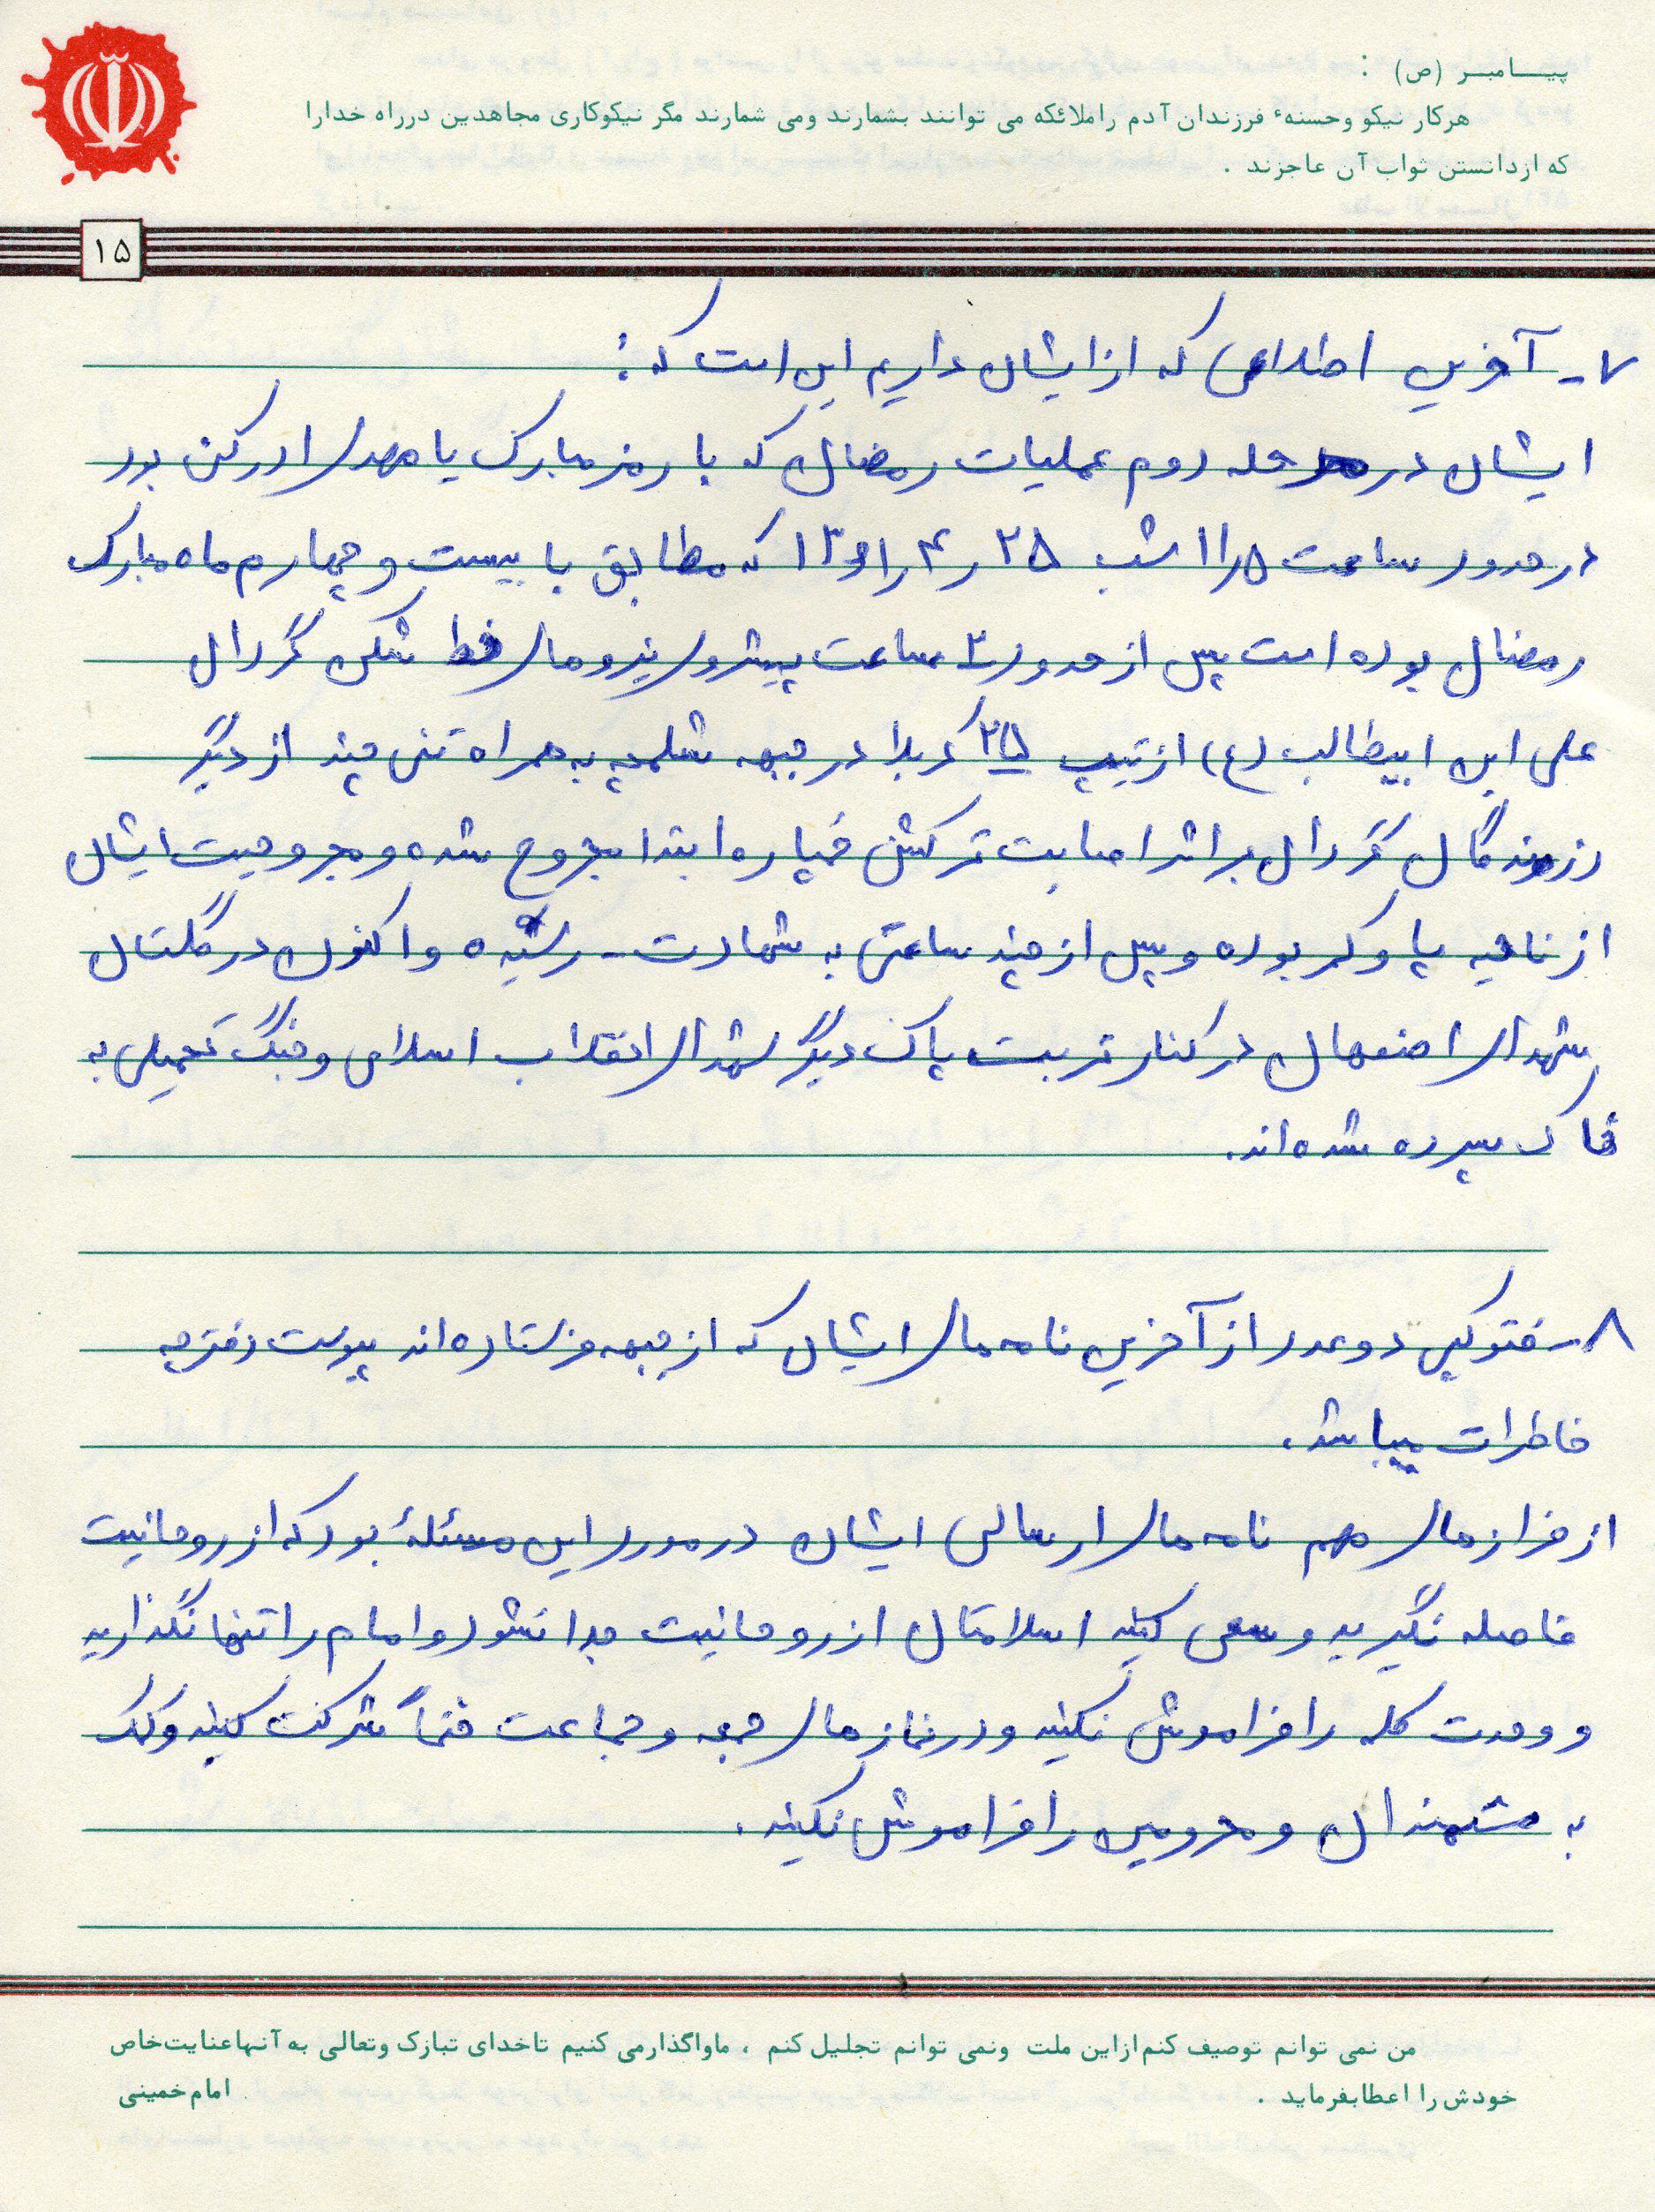 پیـــامبــر (ص) :
هرکار نیکو وحسنهٔ فرزندان آدم راملائکه می توانند بشمارند ومی شمارند مگر نیکوکاری مجاهدین درراه خدارا
که ازدانستن ثواب آن عاجزند .
۱۵
۷- آخرین اطلاعی که از ایشان داریم این است که :
ایشان در مرحله دوم عملیات رمضان که با رمز مبارک یا مهدی ادرکنی بود
در حدود ساعت ۱۱٫۵ شب ۲۵ ر ۴ ر ۱۳۶۱ که مطابق با بیست و چهارم ماه مبارک
رمضان بوده است پس از حدود ۲ ساعت پیشروی نیروهای خط شکن گردان
علی ابن ابیطالب (ع) از تیپ ۲۵ کربلا در جبهه شلمچه به همراه تنی چند از دیگر
رزمندگان گردان بر اثر اصابت ترکش خمپاره ابتدا مجروح شده و مجروحیت ایشان
از ناحیه پا و کمر بوده و پس از چند ساعتی به شهادت - رسیده و اکنون در گلستان
شهدای اصفهان در کنار تربت پاک دیگر شهدای انقلاب اسلامی و جنگ تحمیلی به
خاک سپرده شده‌اند.
۸- فتوکپی دو عدد از آخرین نامه های ایشان که از جبهه فرستاده اند پیوست دفترچه
خاطرات میباشد .
از فرازهای مهم نامه های ارسالی ایشان در مورد این مسئلهٔ بود که از روحانیت
فاصله نگیرید و سعی کنید اسلامتان از روحانیت جدا نشود و امام را تنها نگذارید
و وحدت کلمه را فراموش نکنید و در نمازهای جمعه و جماعت حتماً شرکت کنید و کمک
به مستمندان و محرومین را فراموش نکنید .
من نمی توانم توصیف کنم ازاین ملت ونمی توانم تجلیل کنم ، ماواگذارمی کنیم تاخدای تبارک وتعالی به آنهاعنایت خاص
خودش را اعطابفرماید . امام خمینی